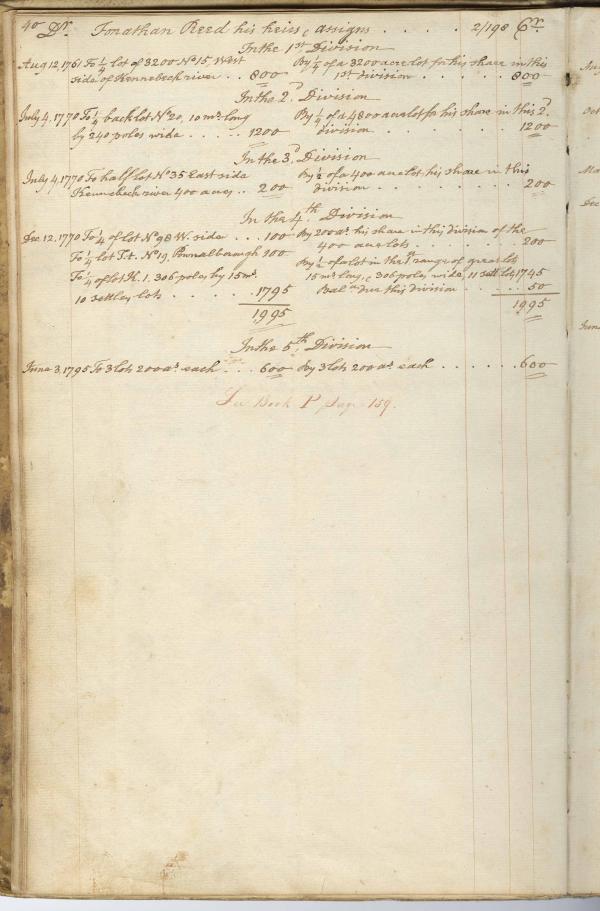 40 Dr. Jonathan Reed his heirs & assigns . . . . . 2/198 Cr.
In the 1st Division
Aug 12, 1761 To ¼ lot of 3200 No 15 West
side of Kennebeck river . . 800
By ¼ of a 3200 acre lot for his share in this
1st division . . . . . . 800
In the 2d Division
July 4, 1770 To ¼ back lot No 20, 10 ms. long
by 240 poles wide . . . . 1200
By ¼ of a 4800 acre lot for his share in this 2d
division . . . . . . . . 1200
In the 3d Division
July 4, 1770 To half lot No 35 East side
Kennebeck river 400 acres . . 200
By ½ of a 400 acre lot, his share in this
division . . . . . . . . 200
In the 4th Division
Dec 12, 1770 To ¼ of lot No 98 W. side . . . 100
To ¼ lot T.t. No 19, Pownalborough 100
To ¼ of lot K. 1. 306 poles by 15 ms.
10 settlers lots . . . . . 1795
1995
By 200 as. his share in this division of the
400 acre lots . . . . . . . 200
By ½ of a lot in the range of great lots
15 ms. long, & 306 poles wide, 11 settls 1745
Balce. due this division . . . . . . 50
1995
In the 5th Division
June 3, 1795 To 3 lots 200 as. each . . . 600
By 3 lots 200 as. each . . . . . . 600
See Book P page 159.